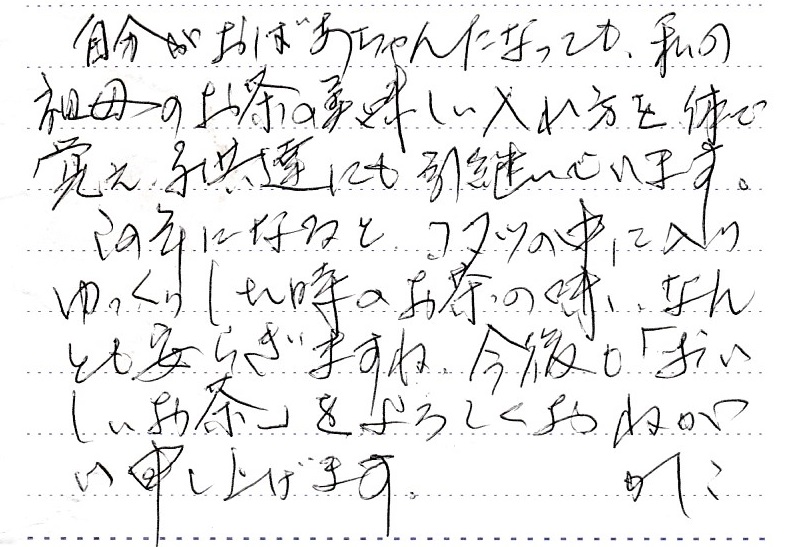 自分がおばあちゃんになっても、私の
祖母のお茶の美味しい入れ方を体で
覚え、子供達にも引継いでいます。
この年になると、コタツの中に入り
ゆっくりした時のお茶の味、なん
とも安らぎますね。今後も「おい
しいお茶」をよろしくおねが
い申し上げます。 かしこ